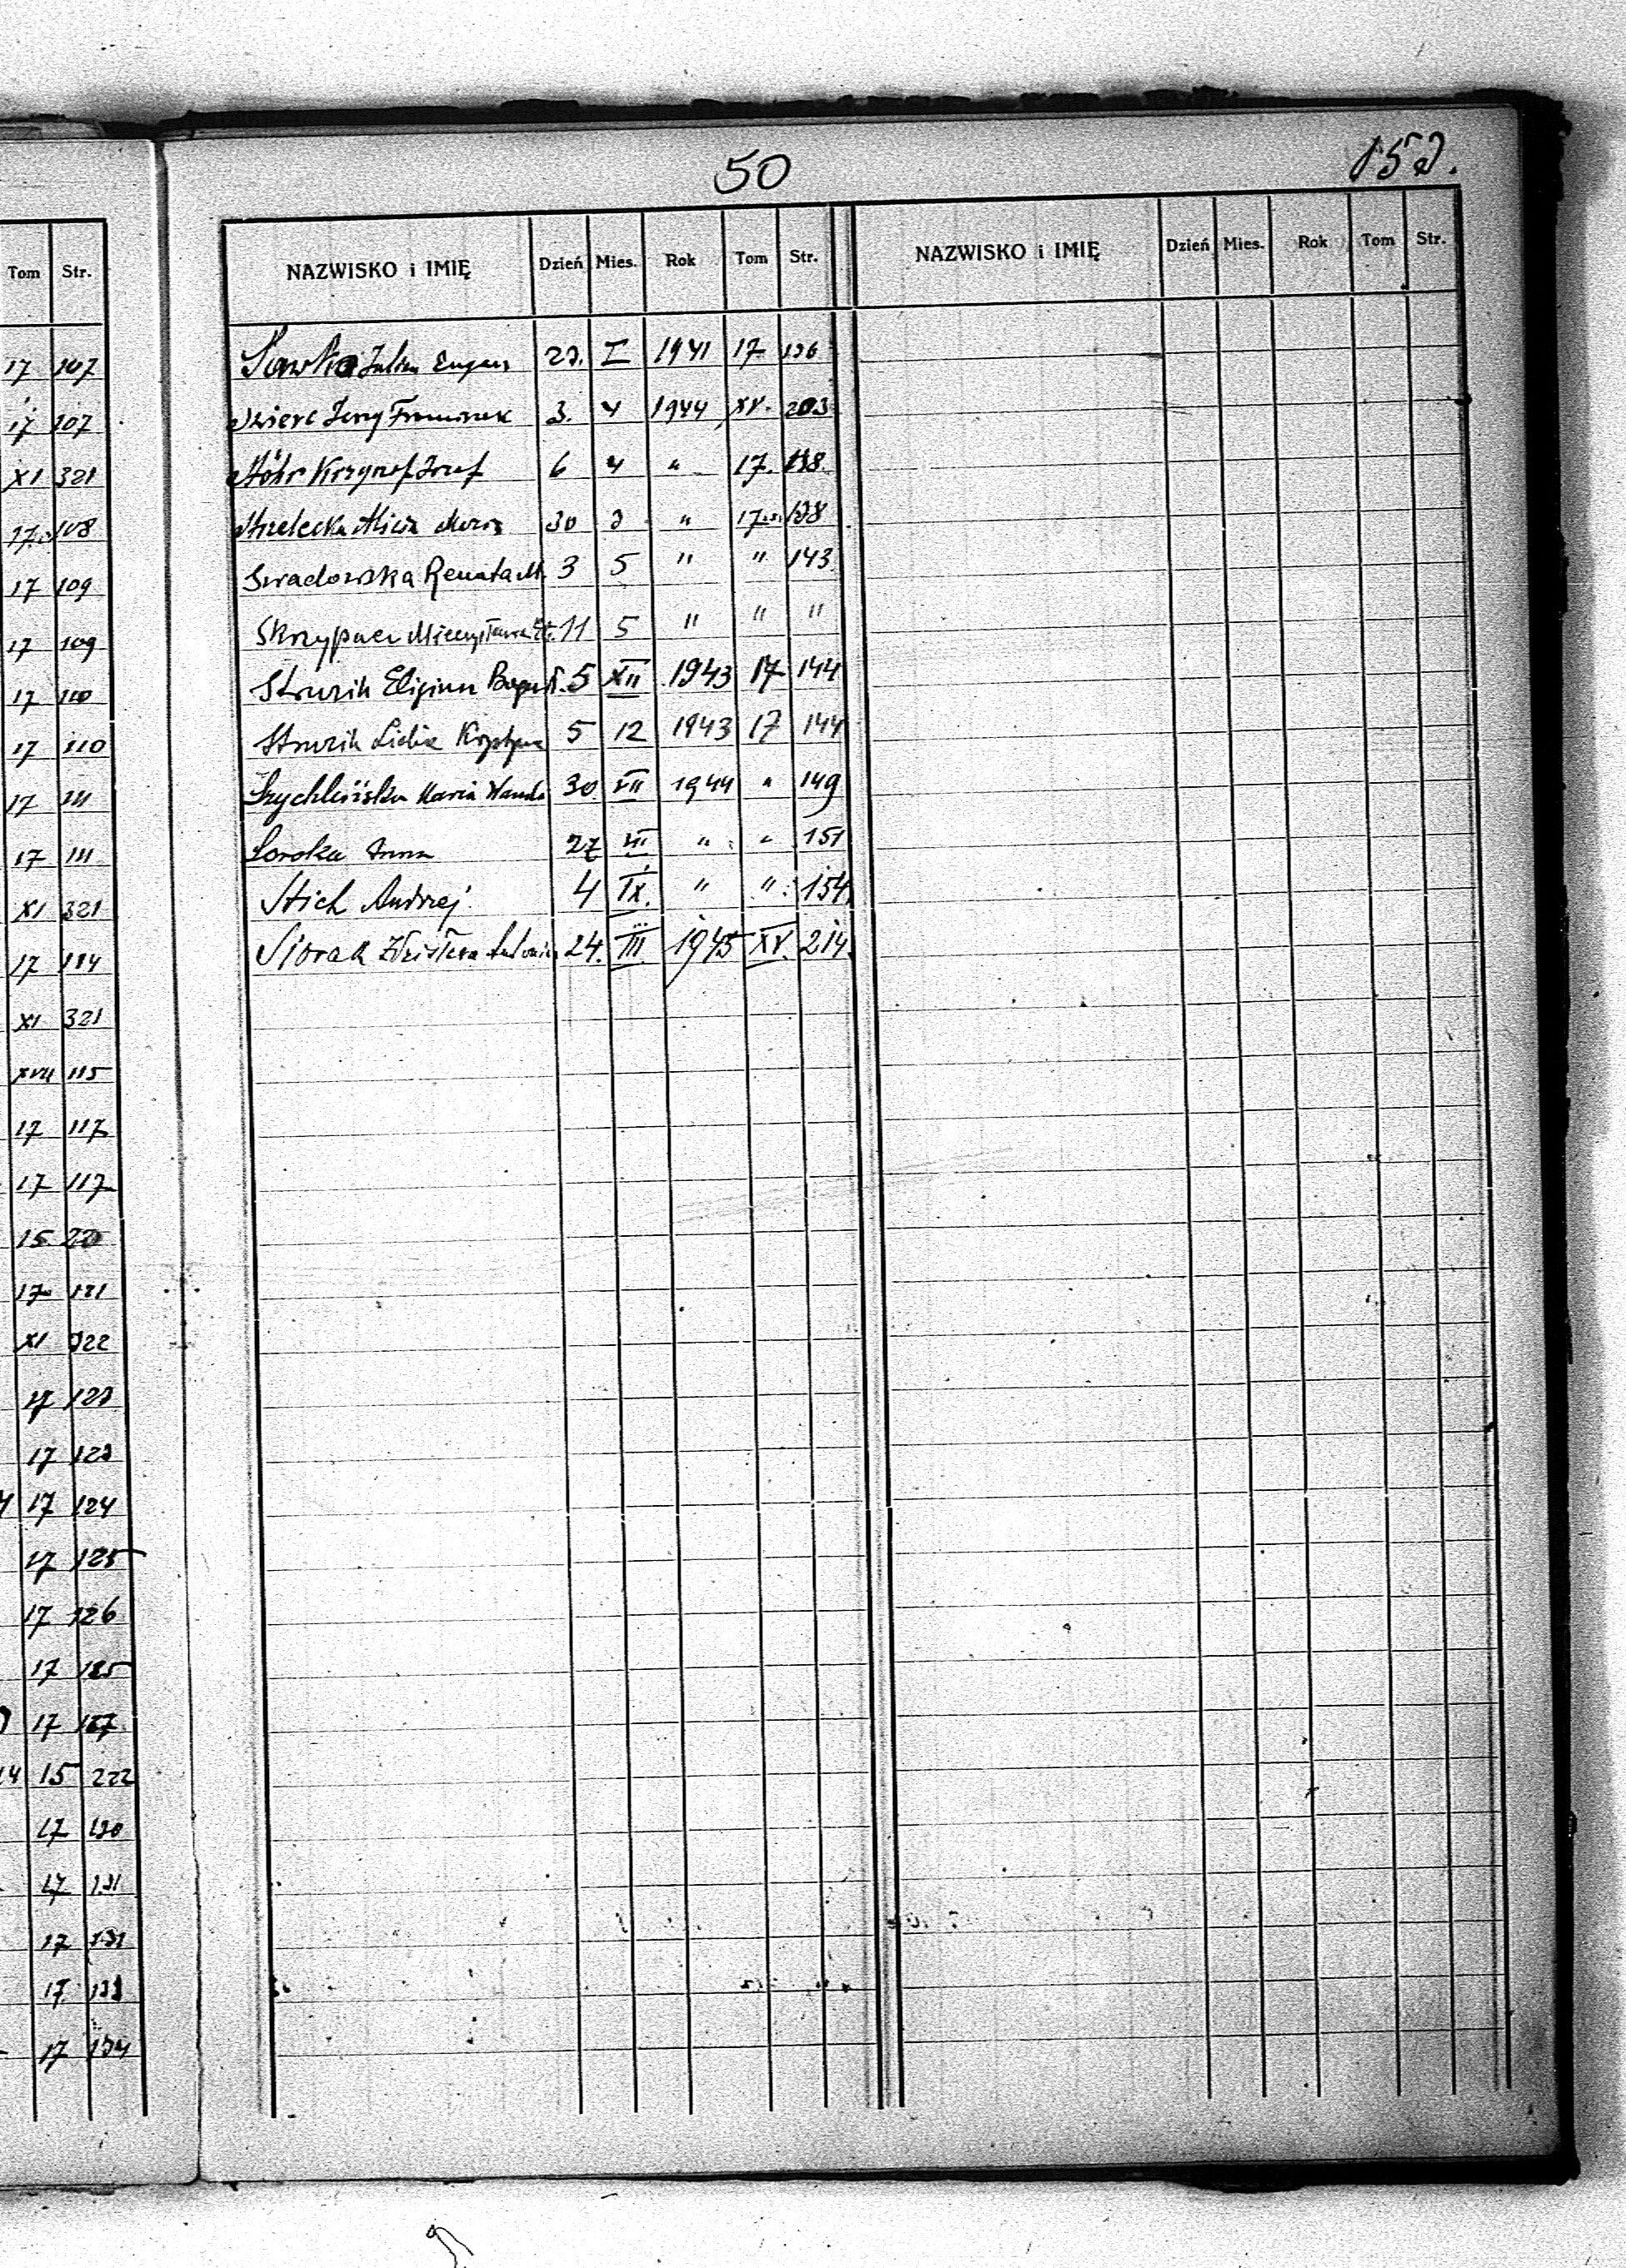 50
153.
Tom Str.
17 107
17 107
XI 321
17. 108
17 109
17 109
17 110
17 110
17 111
17 111
XI 321
17 114
XI 321
XVII 115
17 117
17 117
15
17 121
XI 322
17 123
17 123
17 124
17 125
17 126
17 125
17 127
15 222
17 130
17 131
17 131
17 133
17 134
NAZWISKO i IMIĘ Dzień Mies. Rok Tom Str. NAZWISKO i IMIĘ Dzień Mies. Rok Tom Str.
Sawka Julian Eugen 23. I 1941 17 136
Jerzy Franciszek 3. 4 1944 XV. 203
Stöhr Krzysztof Józef 6 4 " 17. 138.
Strzelecka Alicja Maria 30 3 " 17. 138
Swadowska Renata M. 3 5 " " 143
Skrzypacz Mieczysława St. 11 5 " " "
Struzik Eligiusz Bogusł. 5 XII 1943 17 144
Struzik Lidia Krystyna 5 12 1943 17 144
Szychlińska Maria Wanda 30 VII 1944 " 149
Soroka Anna 27 " " 151
Stich Andrzej 4 IX. " " 154.
Siorak Zdzisława Antonina 24. III. 1945 XV. 214.